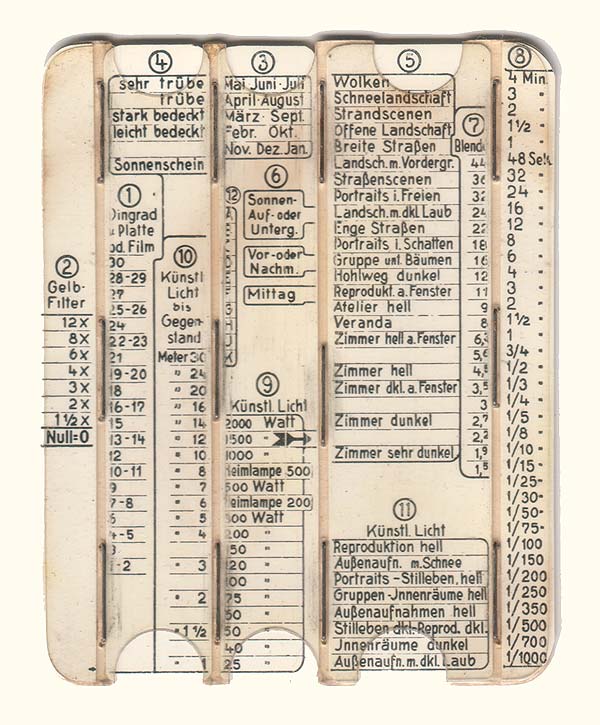 ④
sehr trübe
trübe
stark bedeckt
leicht bedeckt
Sonnenschein
③
Mai·Juni·Juli
April·August
März· Sept.
Febr. Okt.
Nov. Dez. Jan.
⑤
Wolken
Schneelandschaft
Strandscenen
Offene Landschaft
Breite Straßen
Landsch. m. Vordergr.
Straßenscenen
Portraits i. Freien
Landsch. m. dkl. Laub
Enge Straßen
Portraits i. Schatten
Gruppe unt. Bäumen
Hohlweg dunkel
Reprodukt. a. Fenster
Atelier hell
Veranda
Zimmer hell a. Fenster
Zimmer hell
Zimmer dkl. a. Fenster
Zimmer dunkel
Zimmer sehr dunkel
⑦
Blende
44
36
32
24
22
18
16
12
11
9
8
6,3
5,6
4,5
3,5
3
2,7
2,2
1,9
1,5
⑧
4 Min.
3 "
2 "
1½ "
1 "
48 Sek.
32 "
24 "
16 "
12 "
8 "
6 "
4 "
3 "
2 "
1½ "
1 "
3/4 "
1/2 "
1/3 "
1/4 "
1/5 "
1/8 "
1/10 "
1/15 "
1/25 "
1/30 "
1/50 "
1/75 "
1/100 "
1/150 "
1/200 "
1/250 "
1/350 "
1/500 "
1/700 "
1/1000 "
②
Gelb-
Filter
12x
8x
6x
4x
3x
2x
1½x
Null=0
①
Dingrad
Platte
od. Film
30
28-29
27
25-26
24
22-23
21
19-20
18
16-17
15
13-14
12
10-11
9
7-8
6
4-5
3
1-2
⑩
Künstl.
Licht
bis
Gegen-
stand
Meter 30
" 24
" 20
" 16
" 14
" 12
" 10
" 8
" 7
" 6
" 5
" 4
" 3
" 2
" 1½
" 1
⑫
A
K
⑥
Sonnen-
Auf- oder
Unterg.
Vor- oder
Nachm.
Mittag
⑨
Künstl. Licht
2000 Watt
1500 "
1000 "
Heimlampe 500
500 Watt
Heimlampe 200
300 Watt
200 "
150 "
120 "
100 "
75 "
60 "
50 "
40 "
25 "
⑪
Künstl. Licht
Reproduktion hell
Außenaufn. m. Schnee
Portraits-Stilleben, hell
Gruppen-Jnnenräume hell
Außenaufnahmen hell
Stilleben dkl-Reprod. dkl.
Jnnenräume dunkel
Außenaufn. m. dkl. Laub